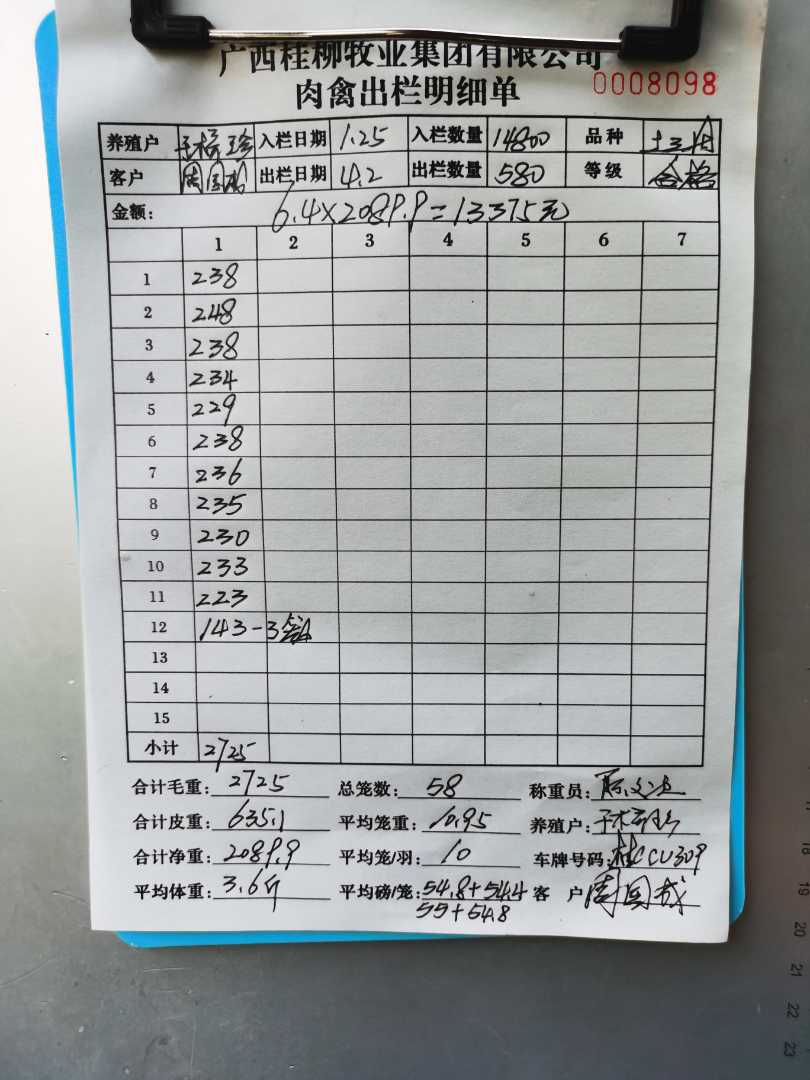 广西桂柳牧业集团有限公司
肉禽出栏明细单 0008098
养殖户 入栏日期 1.25 入栏数量 14800 品种
客户 出栏日期 4.2 出栏数量 580 等级 合格
金额: 6.4×2089.9=13375元
1 2 3 4 5 6 7
1 238
2 248
3 238
4 234
5 229
6 238
7 236
8 235
9 230
10 233
11 223
12 143-3
13
14
15
小计 2725
合计毛重: 2725 总笼数: 58 称重员:
合计皮重: 635.1 平均笼重: 10.95 养殖户:
合计净重: 2089.9 平均笼/羽: 10 车牌号码: 桂CCU309
平均体重: 3.6斤 平均磅/笼: 54.8+54.4 客 户
55+54.8
18
19
20
21
22
23